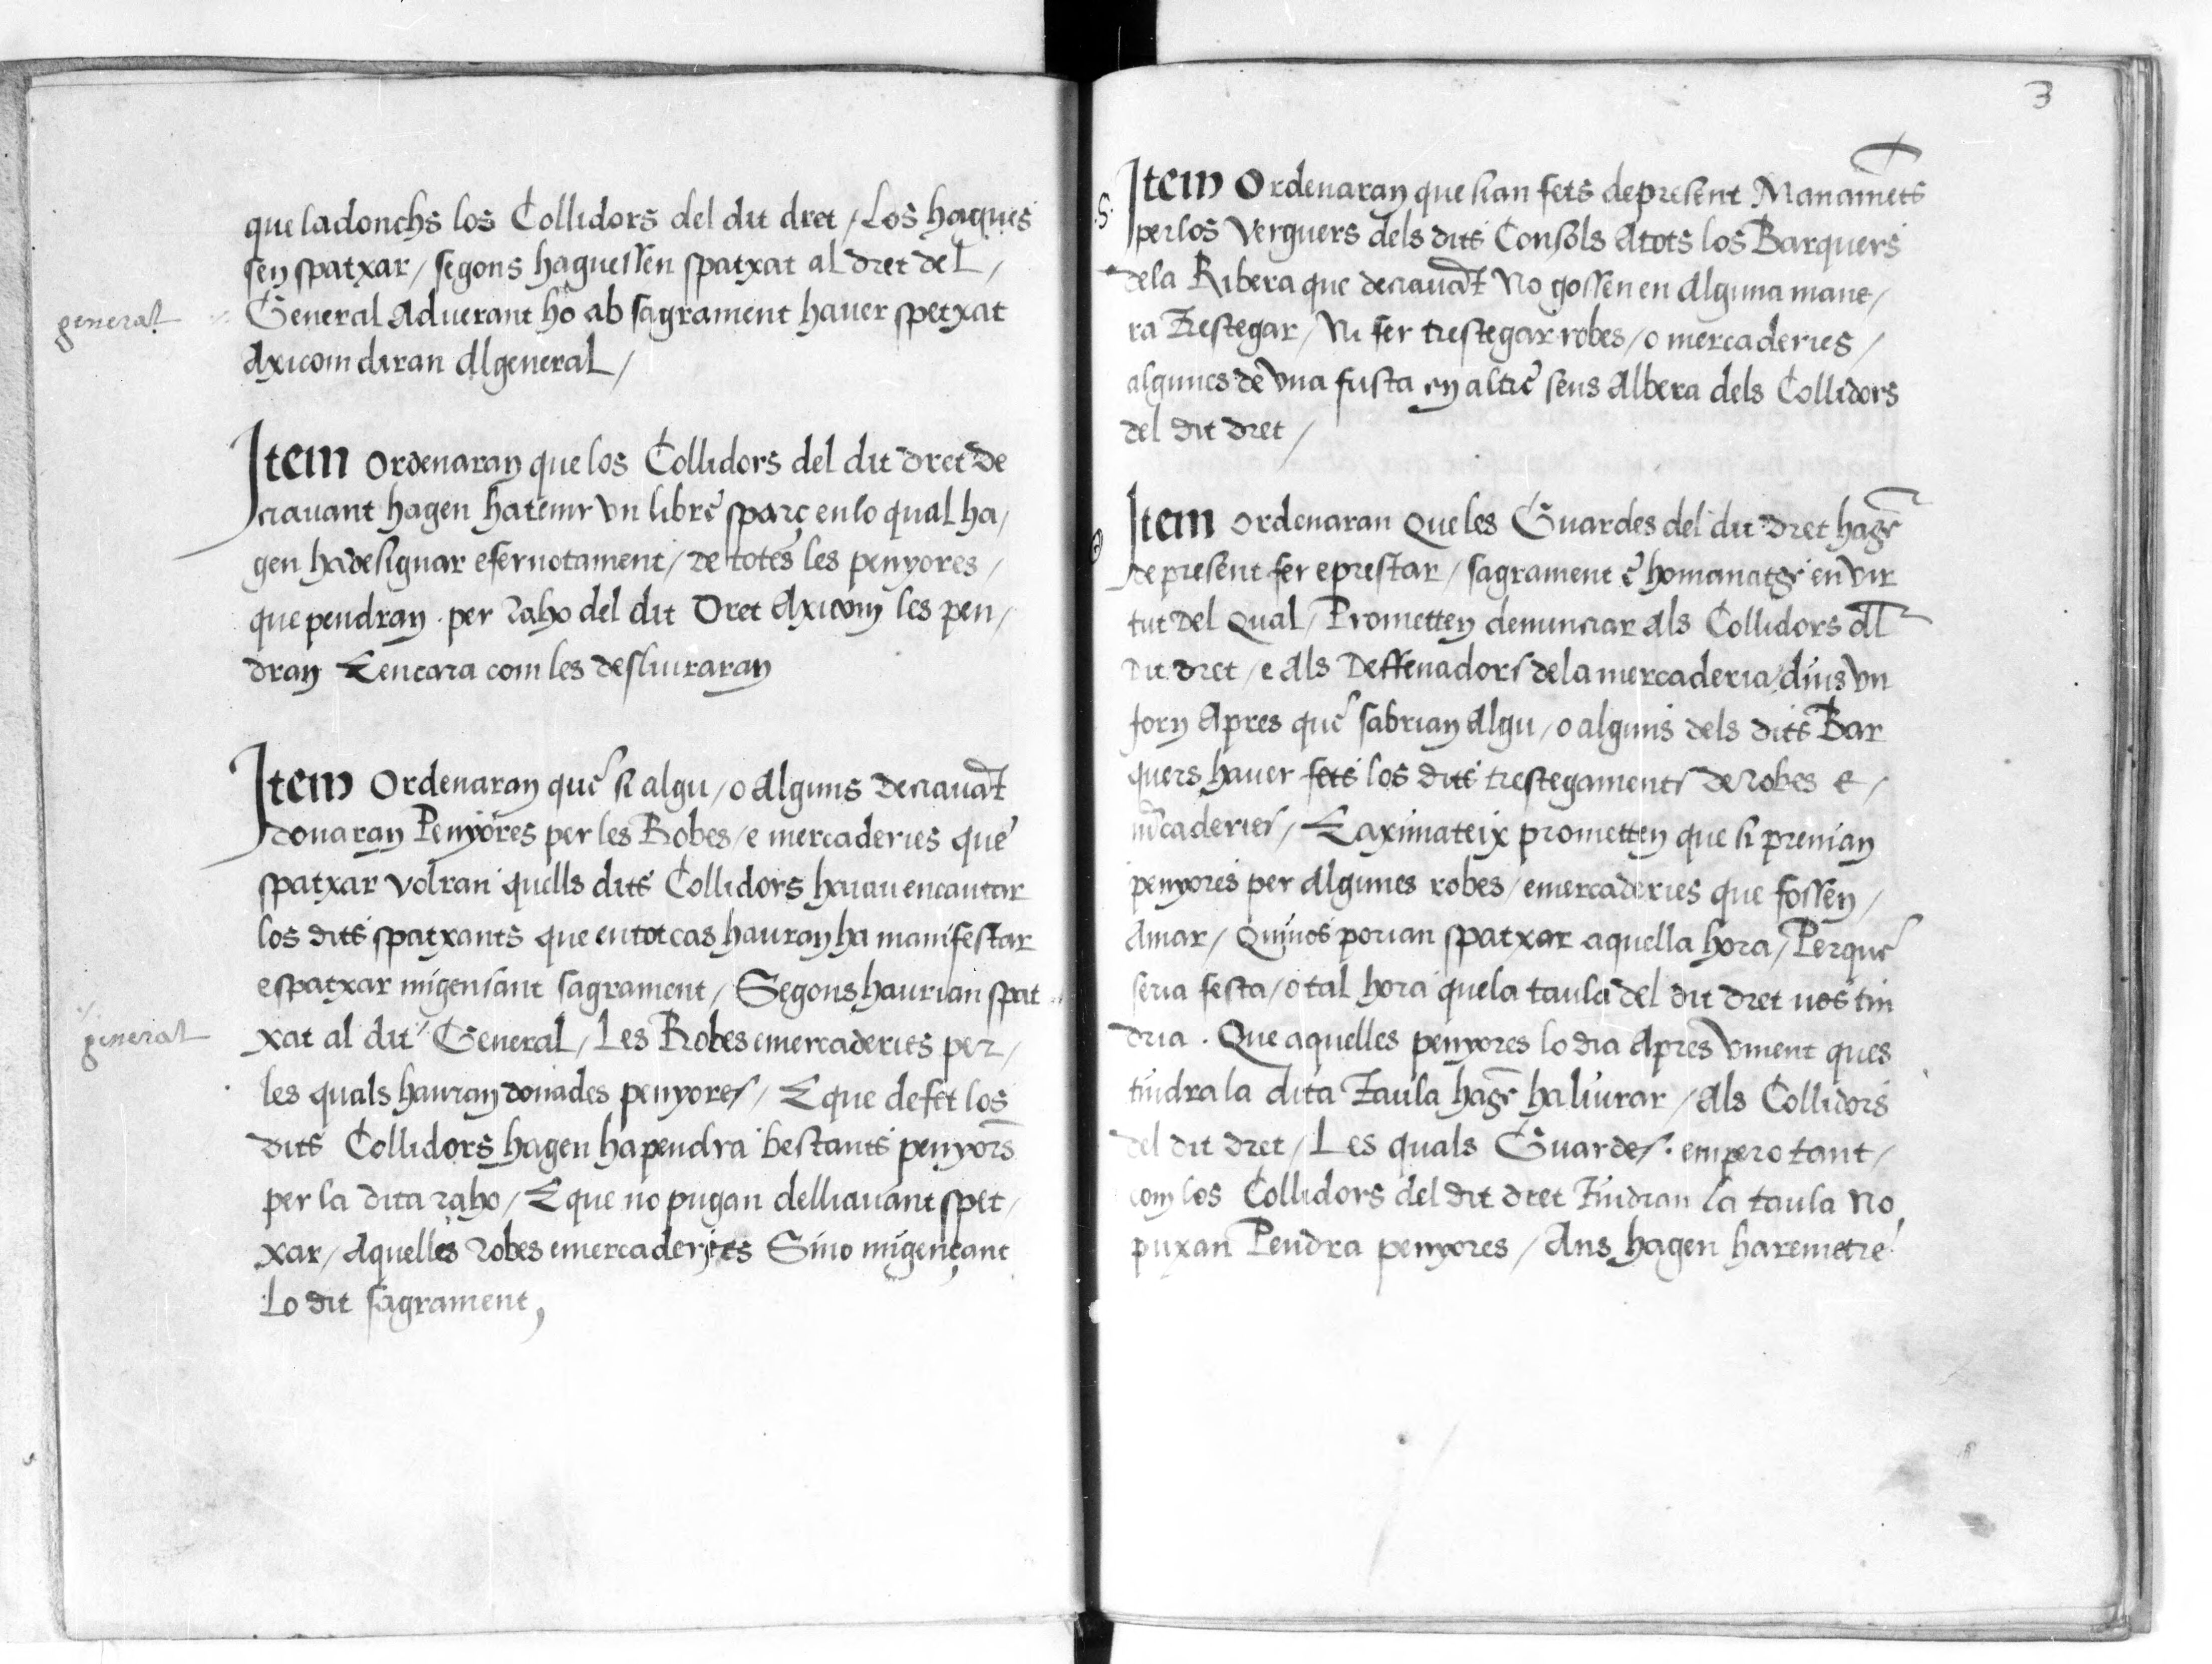 que ladonchs los Collidors del dit dret / Los haques
sen spatxar / segons haguessen spatxat al dret del /
general
General Aduerant ho ab sagrament hauer spetxat
Axicom diran Algeneral /
Item Ordenaran que los Collidors del dit dret de
ciauant hagen hatenir vn libre sparç en lo qual ha /
gen hadesignar e fer notament / de totes les penyores /
que pendran . per raho del dit Dret Axicom les pen /
dran E encara com les desliuraran
Item Ordenaran que si algu / o Alguns deciauāt
donaran Penyores per les Robes / e mercaderies que
spatxar volran quells dits Collidors haian encautar
los dits spatxants que entotcas hauran ha manifestar
e spatxar migensant sagrament / Segons haurian spat
general
xat al dit General / Les Robes e mercaderies per /
les quals hauran donades penyores / E que de fet los
dits Collidors hagen hapendra bestants penyors
per la dita raho / E que no pugan delliauant spet /
xar / Aquelles robes e mercaderies Sino migençant
Lo dit sagrament,
3
.S. Item Ordenaran que sian fets depresent Manamēts
perlos Verguers dels dits Consols Atots los Barquers
dela Ribera que deciauāt No gossen en Alguna mane /
ra Trestegar / Ni fer trestegar robes / o mercaderies /
algunes de vna fusta en altre sens Albera dels Collidors
del dit dret /
Item Ordenaran Que les Guardes del dit dret hagē
de present fer e prestar / sagrament e homanatge en vir
tut Del Qual / Prometten denunciar Als Collidors dl
Dit dret / e Als Deffenadors dela mercaderia / dins vn
jorn Apres que sabrian Algu / o alguns dels dits Bar
quers hauer fets los dits trestegaments de robes e /
mr̄caderies / E aximateix prometten que si prenian
penyores per Algunes robes / emercaderies que fossen /
Amar / Quinos porian spatxar aquella hora / Perque
seria festa / o tal hora quela taula del dit dret nos tin
dria . Que aquelles penyores lo dia Apres vinent ques
tindra la dita Taula hagē haliurar / Als Collidors
del dit dret / Les quals Guardes . empero tant /
com los Collidors del dit dret Tindran la taula No
puxan Pendra penyores / Ans hagen haremetre